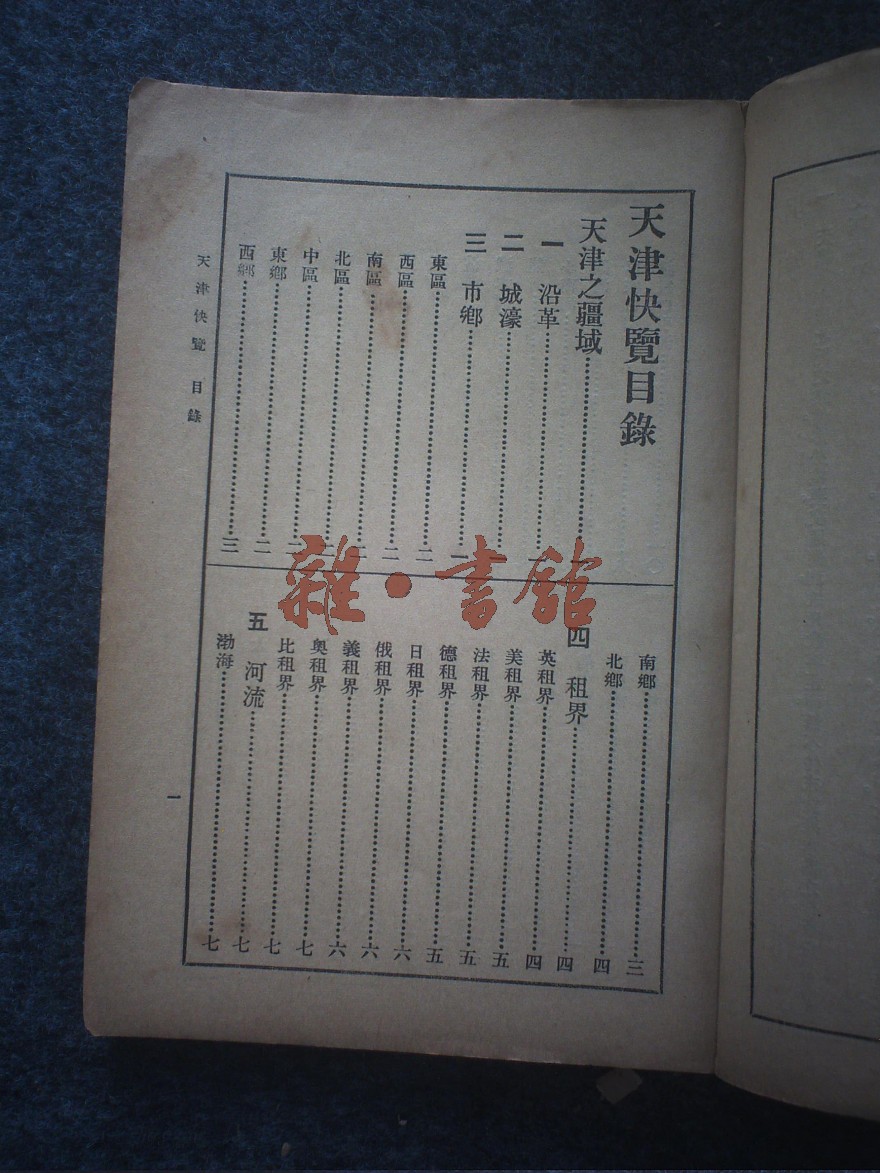 天津快覽目錄
天津之疆域
一 沿革
二 城濠
三 市鄉 一
東區 二
西區 二
南區
北區
中區
東鄉 二
西鄉 三
南鄉 三
北鄉 四
四 租界 四
英租界 四
美租界 五
法租界 五
德租界 五
日租界 六
俄租界 六
義租界 六
奧租界 七
比租界 七
五 河流 七
渤海 七
天津快覽 目錄
一
雜·書舘